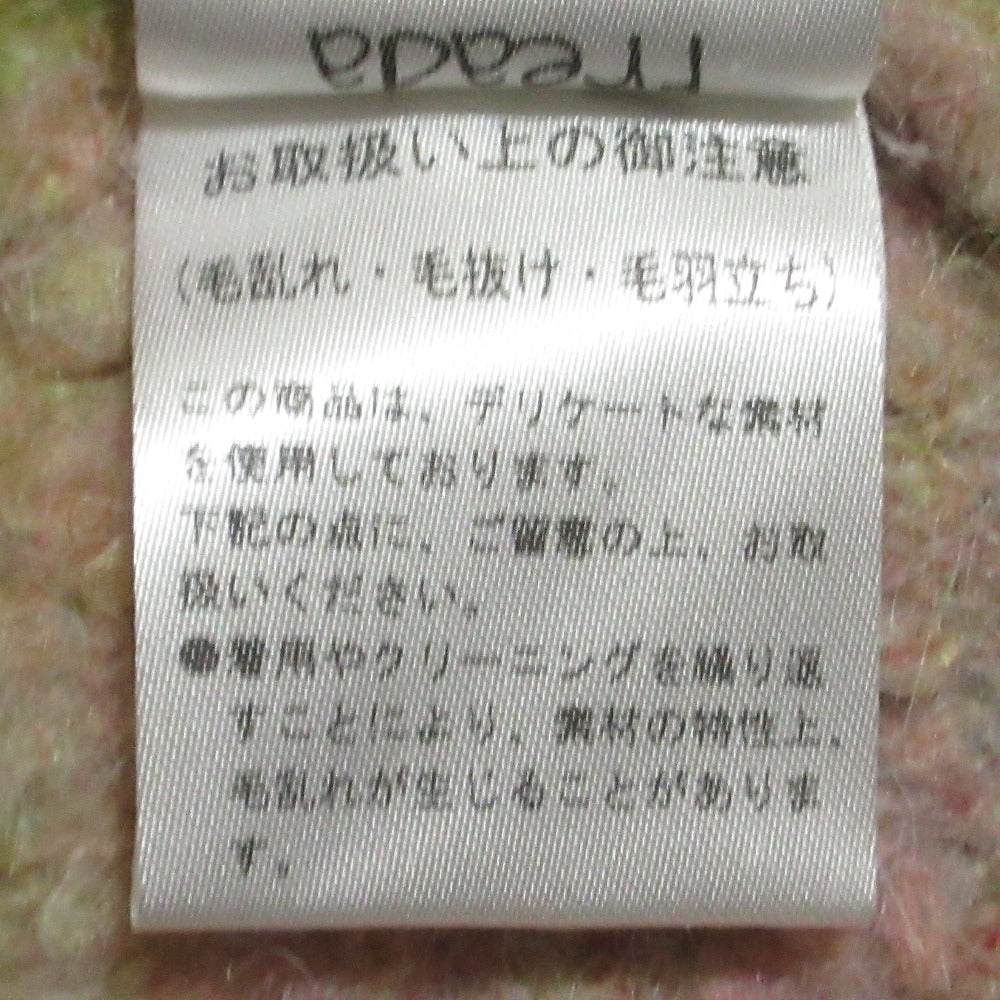 お取扱い上の御注意
(毛乱れ・毛抜け・毛羽立ち)
この商品は、デリケートな素材
を使用しております。
下記の点に、ご留意の上、お取
扱いください。
●着用やクリーニングを繰り返
すことにより、素材の特性上、
毛乱れが生じることがありま
す。